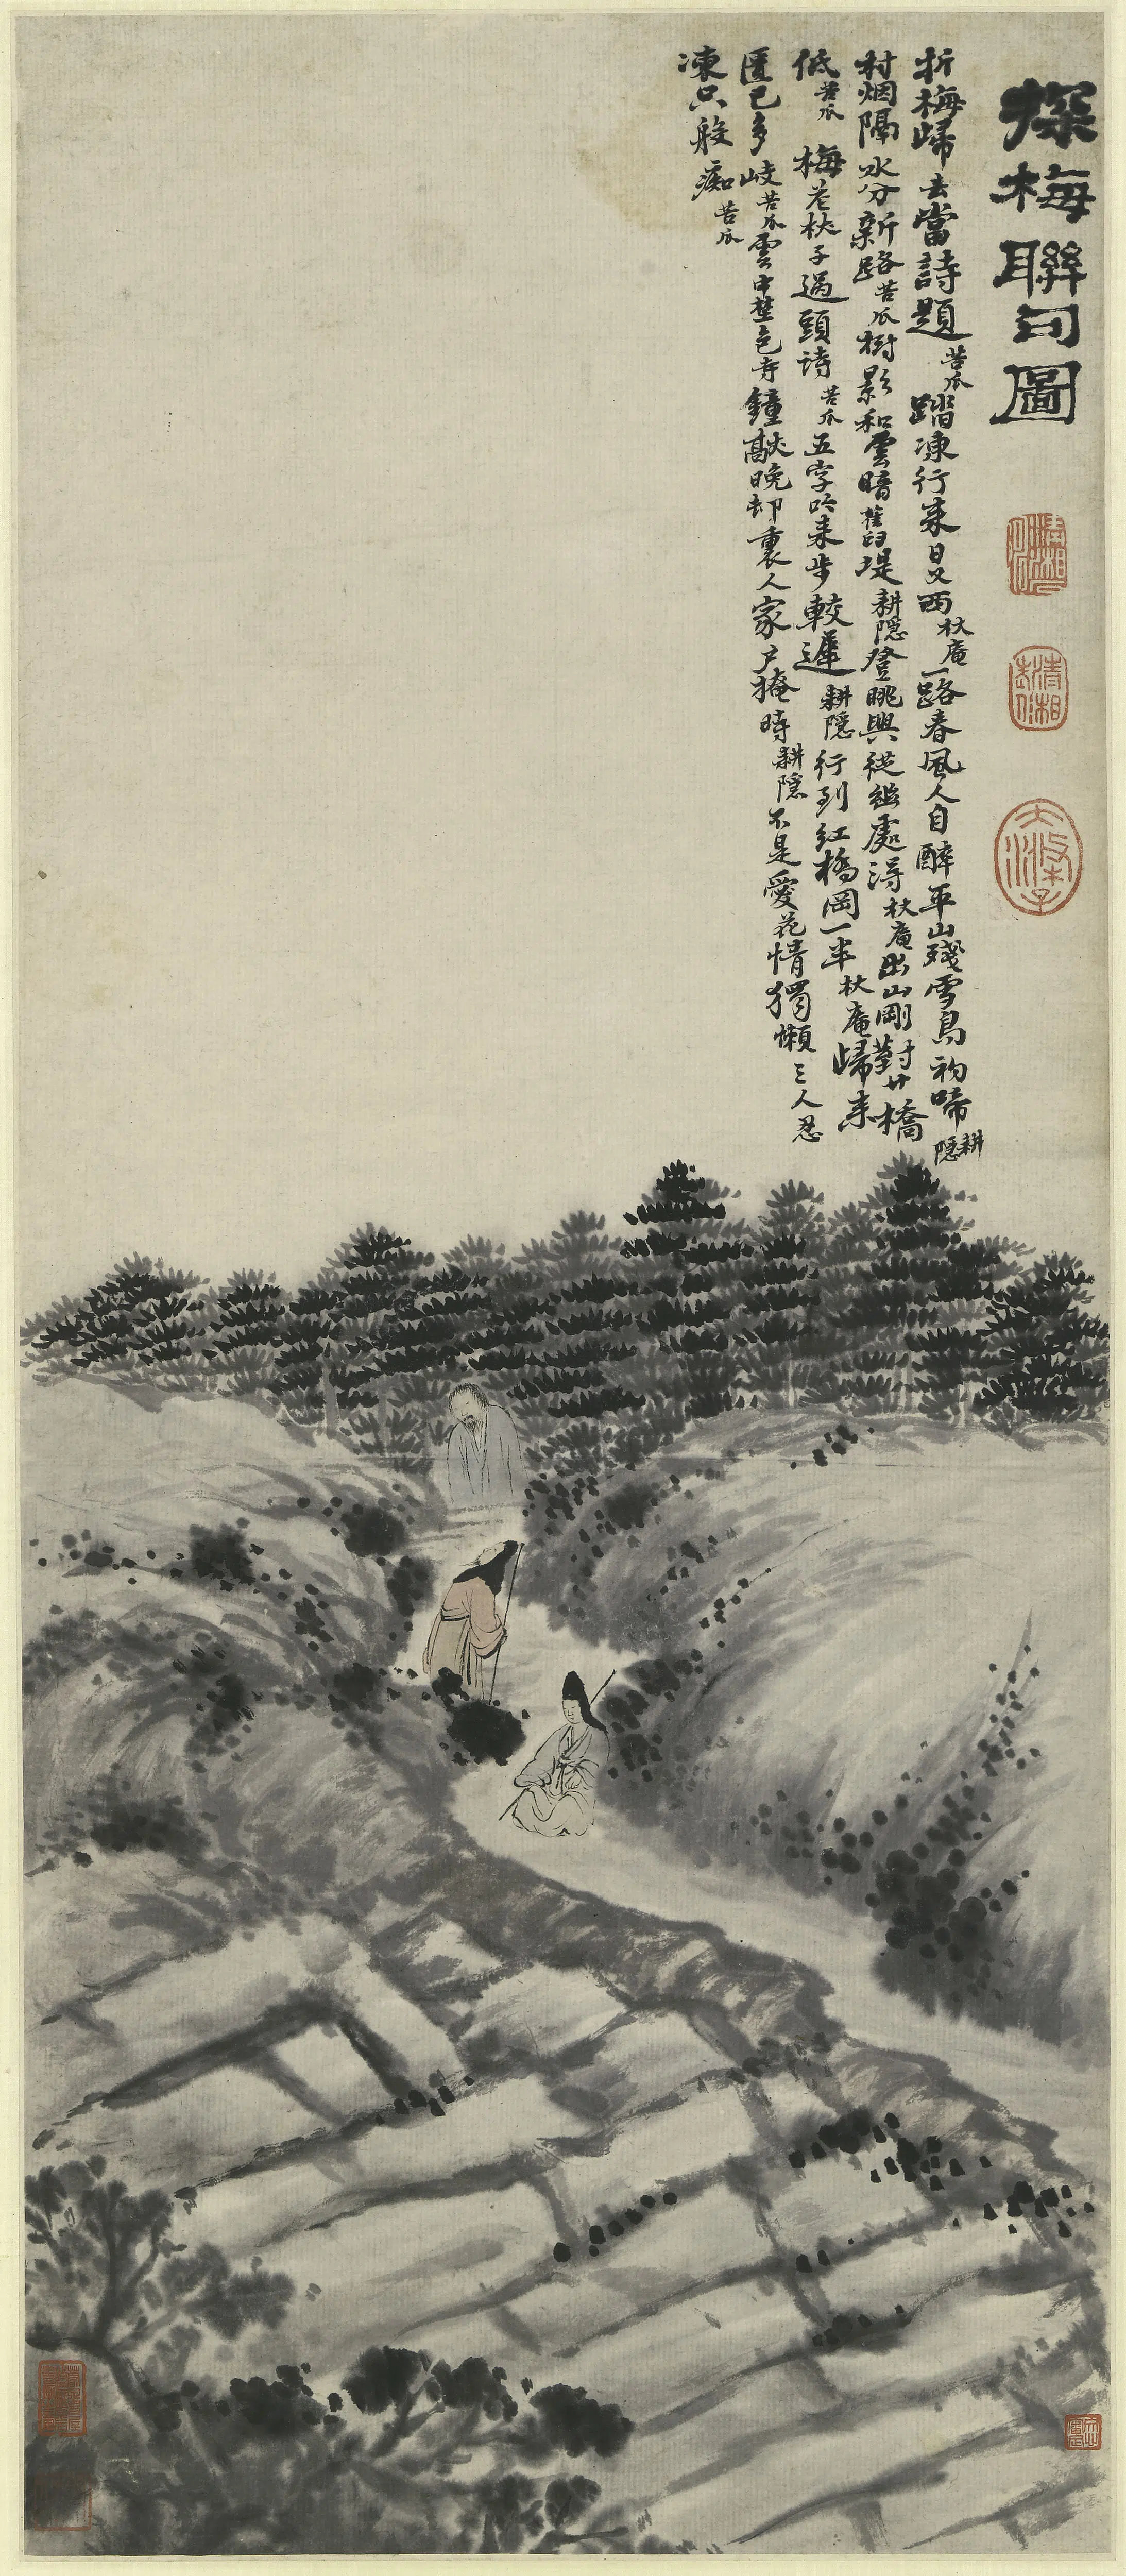 探梅聯句圖
折梅歸去當詩題 苦瓜 踏凍行来日又西 杕庵 一路春風人自醉平山殘雪鳥初啼 耕隱
村烟隔水分新路 苦瓜 樹影和雲暗舊堤 耕隱 登眺興從繼處得 杕庵 出山剛對廿橋
低 苦瓜 梅花杖子過頭詩 苦瓜 五字吟来步較遲 耕隱 行到紅橋岡一半 杕庵 歸来
匿已多岐 苦瓜 雲中埜色寺鐘敲晚却裏人家戶掩時 耕隱 不是愛花情獨懶三人忍
凍只般痴 苦瓜
清湘
大滌子